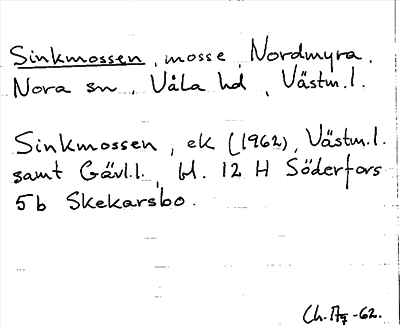 Sinkmossen, mosse, Nordmyra,
Nora sn, Våla hd, Västm.l.
Sinkmossen, ek (1962), Västm.l.
samt Gävl.l., bl. 12 H Söderfors
5b Skekarsbo.
-62.